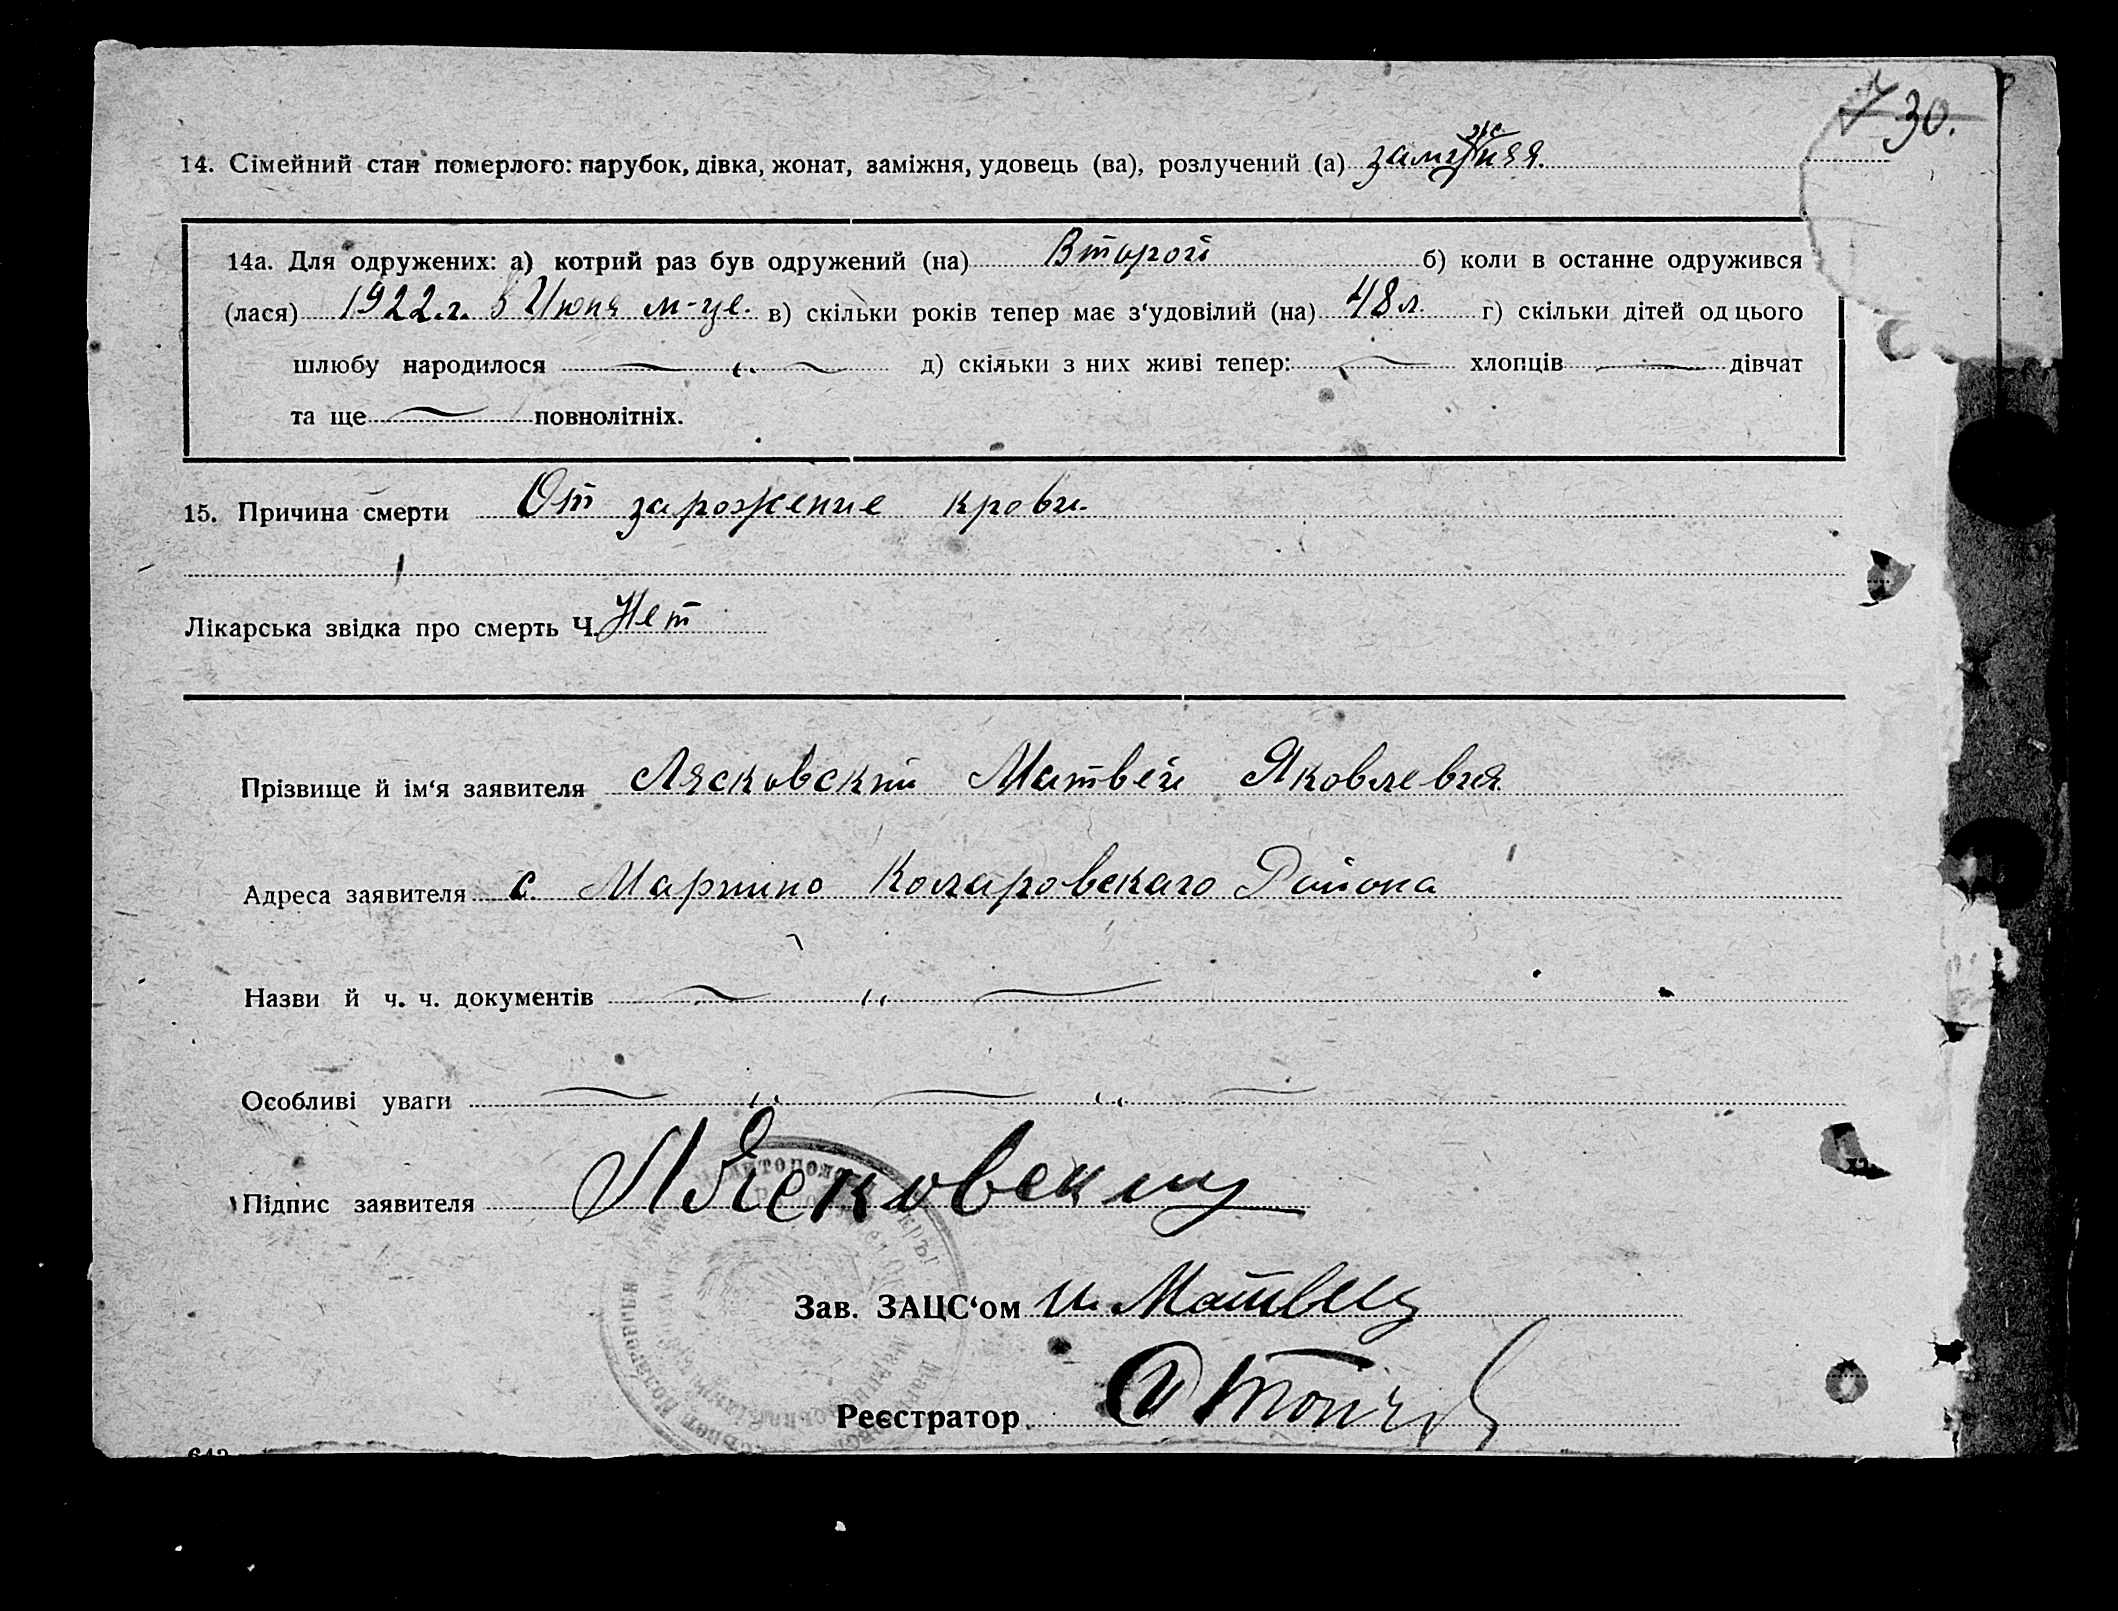 30.
14. Сімейний стан померлого: парубок, дівка, жонат, заміжня, удовець (ва), розлучений (а) замужняя.
14а. Для одружених: а) котрий раз був одружений (на) Второй б) коли в останне одружився
(лася) 1922.г. в Июня м-це. в) скільки років тепер має з‘удовілий (на) 48 л. г) скільки дітей од цього
шлюбу народилося д) скільки з них живі тепер: хлопців дівчат
та ще повнолітніх.
15. Причина смерти От зарожение крови.
Лікарська звідка про смерть Ч. Нет
Прізвище й ім‘я заявителя Лясковский Матвей Яковлевия
Адреса заявителя с. Марино Коларовскаго Района
Назви й ч. ч. документів
Особливі уваги
Підпис заявителя Лясковский
Зав. ЗАЦС‘ом
Реєстратор